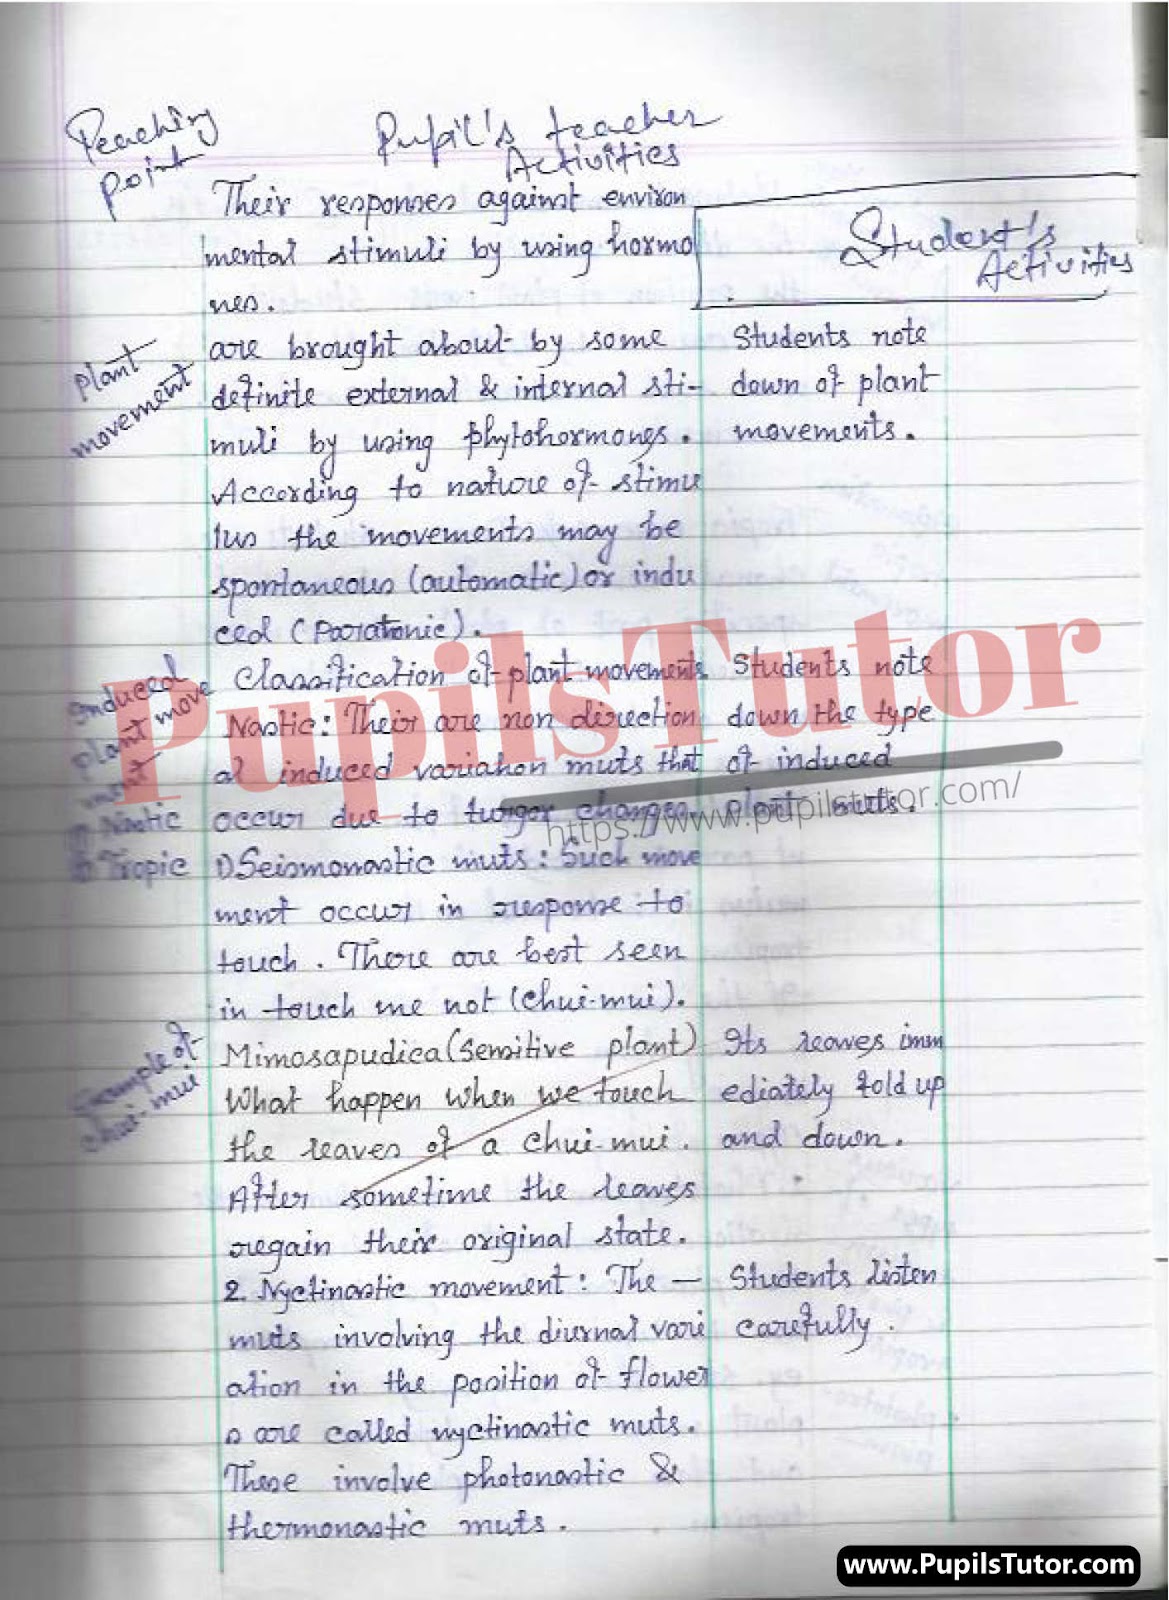 Teaching Point
Pupil's teacher Activities
Student's Activities
Their responses against environ
mental stimuli by using hormo
nes.
plant movement
are brought about by some
definite external & internal sti-
muli by using phytohormones.
According to nature of stimu
lus the movements may be
spontaneous (automatic) or indu
ced (Paratonic).
Students note
down of plant
movements.
Induced plant movement
① Nastic
② Tropic
Classification of plant movements
Nastic: Their are non direction
al induced variation muts that
occur due to turgor changes.
1) Seismonastic muts: Such move
ment occur in response to
touch. There are best seen
in touch me not (chui-mui).
Students note
down the type
of induced
plant muts.
Example of chui-mui
Mimosapudica (Sensitive plant)
What happen when we touch
the leaves of a chui-mui.
After sometime the leaves
regain their original state.
Its leaves imm
ediately fold up
and down.
2. Nyctinastic movement: The —
muts involving the diurnal vari
ation in the position of flower
s are called nyctinastic muts.
These involve photonastic &
thermonastic muts.
Students listen
carefully.
PupilsTutor
https://www.pupilstutor.com/
www.PupilsTutor.com